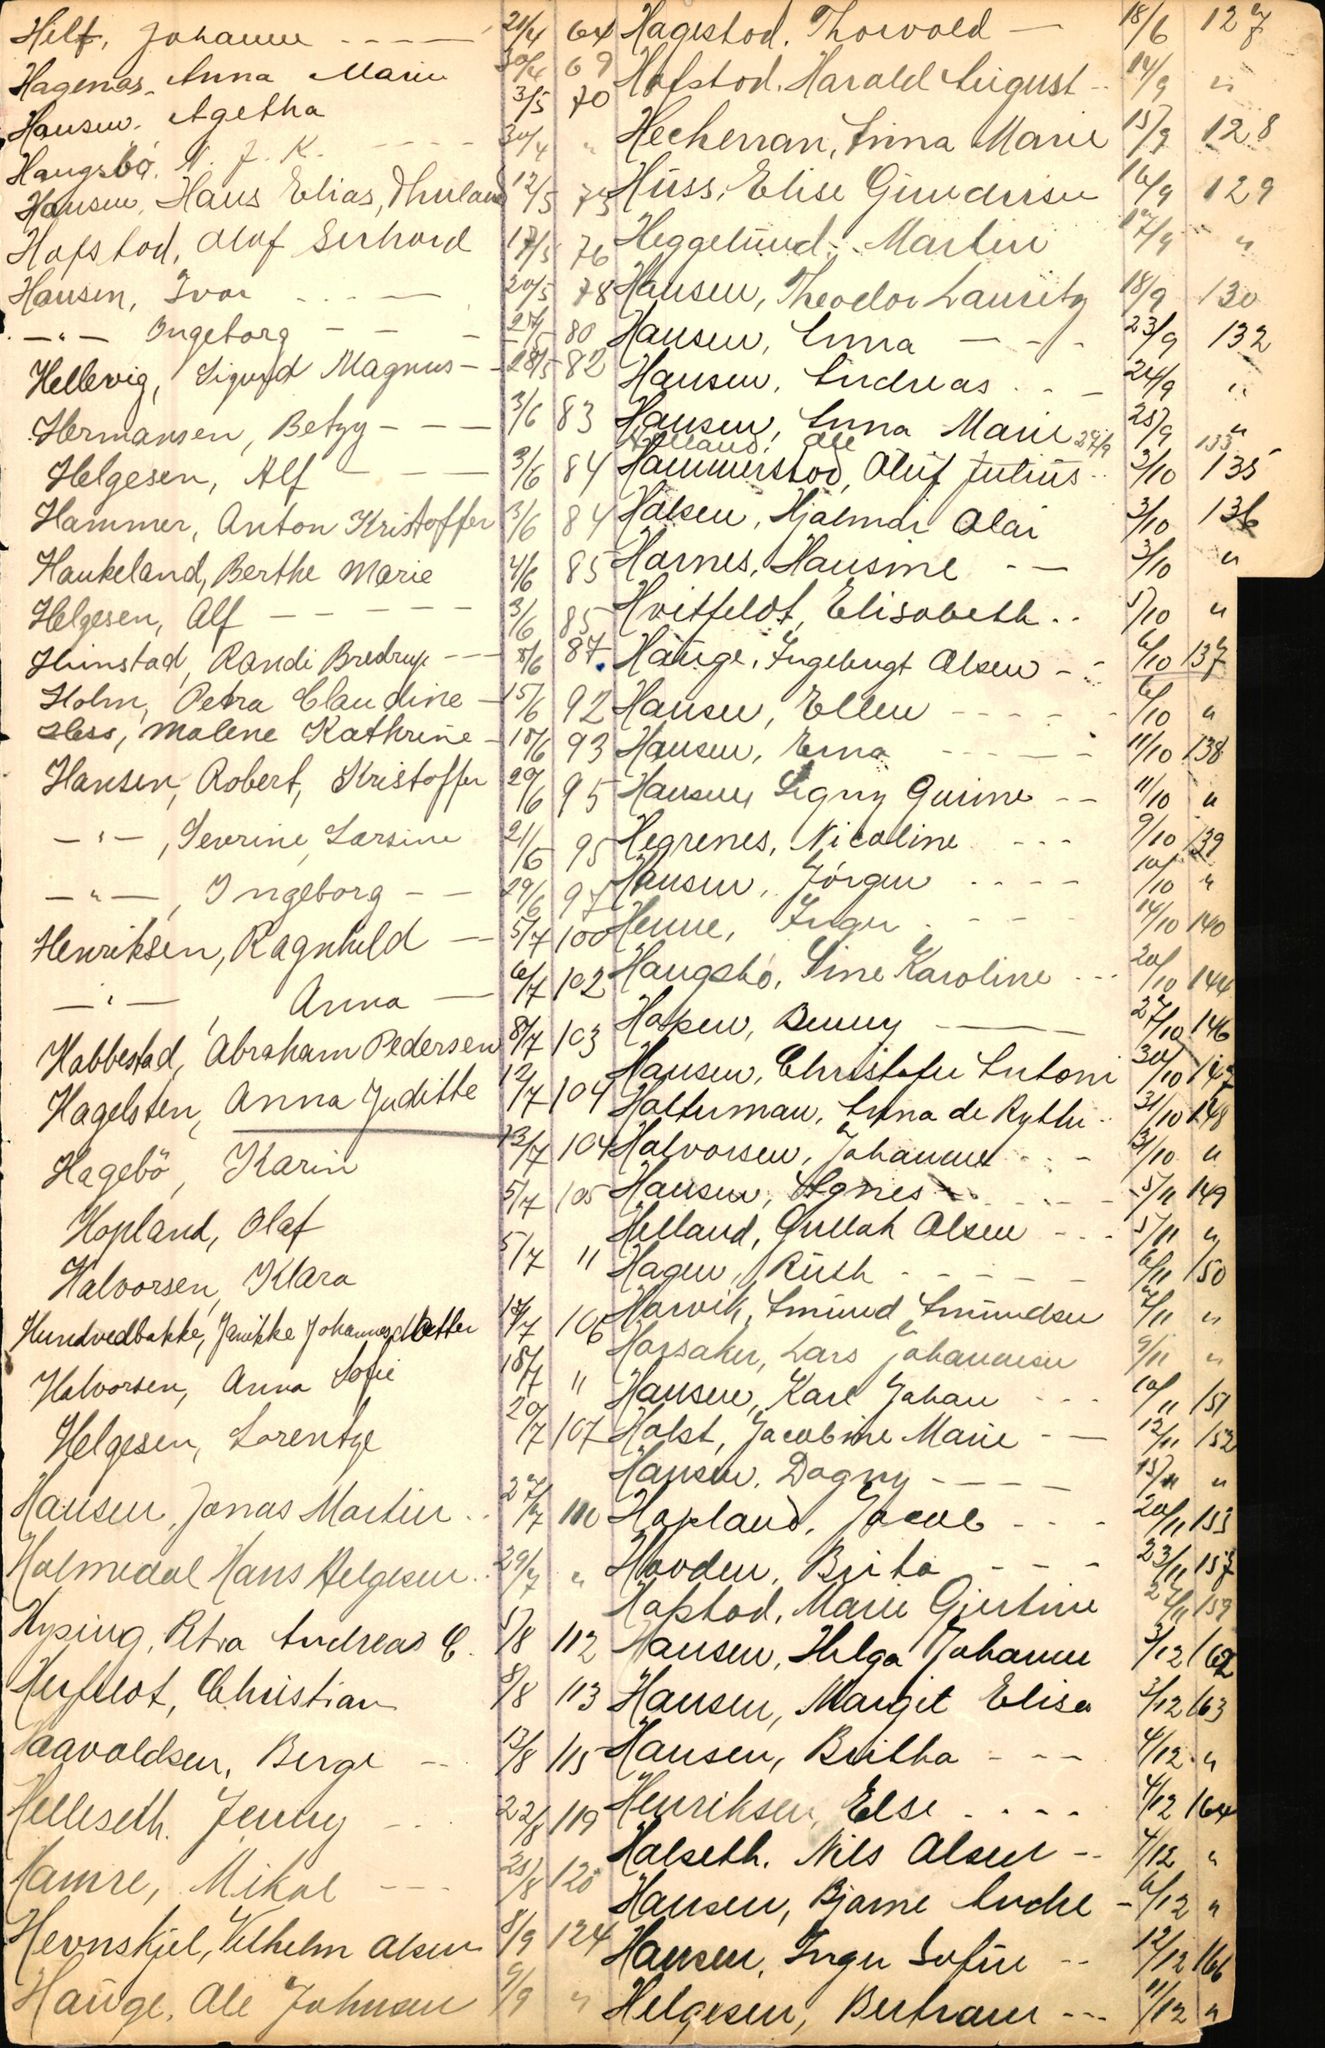 Hilf, Johanne - - - - 21/4 64
Hagenas, Anna Marie 30/4 69
Hansen, Agetha 3/5 70
Haugsbö, N. J. K. - - - - 30/4 "
Hansen, Hans Elias, Thuland 12/5 75
Hofstad, Olaf Gerhard 17/5 76
Hansen, Ivar - - - - 20/5 78
- " - Ingeborg - - - 27/5 80
Hellevig, Sigurd Magnus - - 28/5 82
Hermansen, Betzy - - - 3/6 83
Helgesen, Alf - - - 3/6 84
Hammer, Anton Kristoffer 3/6 84
Haukeland, Berthe Marie 4/6 85
Helgesen, Alf - - - - - 3/6 85
Hunstad, Randi Bredrup - - 8/6 87
Holm, Petra Claudine - 15/6 92
Hess, Malene Kathrine - 18/6 93
Hansen, Robert, Kristoffer 20/6 95
- " - , Severine, Larsine 21/6 95
- " - , Ingeborg - - 29/6 97
Henriksen, Ragnhild - 5/7 100
- " - , Anna - 6/7 102
Habbestad, Abraham Pedersen 8/7 103
Hagelsten, Anna Judithe 12/7 104
Hagebö, Karin 13/7 104
Hopland, Olaf 5/7 105
Halvorsen, Klara 5/7 "
Hundvedbakke, Janikke Johannesdotter 17/7 106
Halvorsen, Anna Sofie 18/7 "
Helgesen, Lorentze 20/7 107
Hansen, Jonas Martin . . 27/7 110
Holmedal Hans Helgesen . . 29/7 "
Hysing, Andreas C. 5/8 112
Christian 8/8 113
Haavaldsen, Berge - - 13/8 115
Helleseth, Jenny - - - 22/8 119
Hamre, Mikal - - - 25/8 120
Hevnskjel, Vilhelm Olsen 8/9 124
Hauge, Ole Johnsen 9/9 "
Hagestad, Thorvald - 18/6 127
Hofstad, Harald August - - 14/9 "
Anna Marie 15/9 128
Huss, Elise Gundersen 16/9 129
Heggelund, Martin 17/9 "
Hansen, Theodor Lauritz 18/9 130
Hansen, Anna - - - 23/9 132
Hansen, Andreas - - - 24/9 "
Hansen, Anna Marie 25/9 "
Helland, Ole 27/9 133
Hammerstad, Oluf Julius - - 3/10 135
Halsen, Hjalmar Olai 3/10 136
Harnes, Hansine - - 3/10 "
Hvitfeldt, Elisabeth . . 5/10 "
Hauge, Ingebrigt Olsen - - 6/10 137
Hansen, Ellen - - - - 6/10 "
Hansen, Erna - - - - 11/10 138
Hansen, Signy Gurine - - 11/10 "
Hegrenes, Nicoline - - - 9/10 139
Hansen, Jörgen - - - - 10/10 "
Henne, Inger - - - - 14/10 140
Haugsbö, Sine Karoline - - - 20/10 144
Hopen, Benny - - - - 27/10 146
Hansen, Christofer Antoni 30/10 147
Halterman, Anna de Rythr . . 31/10 148
Halvorsen, Johanne - - 31/10 "
Hansen, Agnes - - - - 5/11 149
Helland, Gullak Olsen - - - 5/11 "
Hagen, Ruth - - - - - 6/11 150
Harvik, Amund Amundsen 7/11 "
Haasaker, Lars Johannesen 9/11 "
Hansen, Karl Johan - - - 10/11 151
Holst, Jacobine Marie - - 12/11 152
Hansen, Dagny - - - - 15/11 "
Hopland, Jacob - - - 20/11 153
Hovden, Brita - - - 23/11 157
Hopstad, Marie Gjertine 27/11 159
Hansen, Helga Johanne 3/12 162
Hansen, Margit Elise 3/12 163
Hansen, Britha - - - 4/12 "
Henriksen, Else - - - - 4/12 164
Halseth, Nils Olsen - - 4/12 "
Hansen, Bjarne Andre - 6/12 "
Hansen, Inger Sofie - - 12/12 166
Helgesen, Bertram - - - 11/12 "